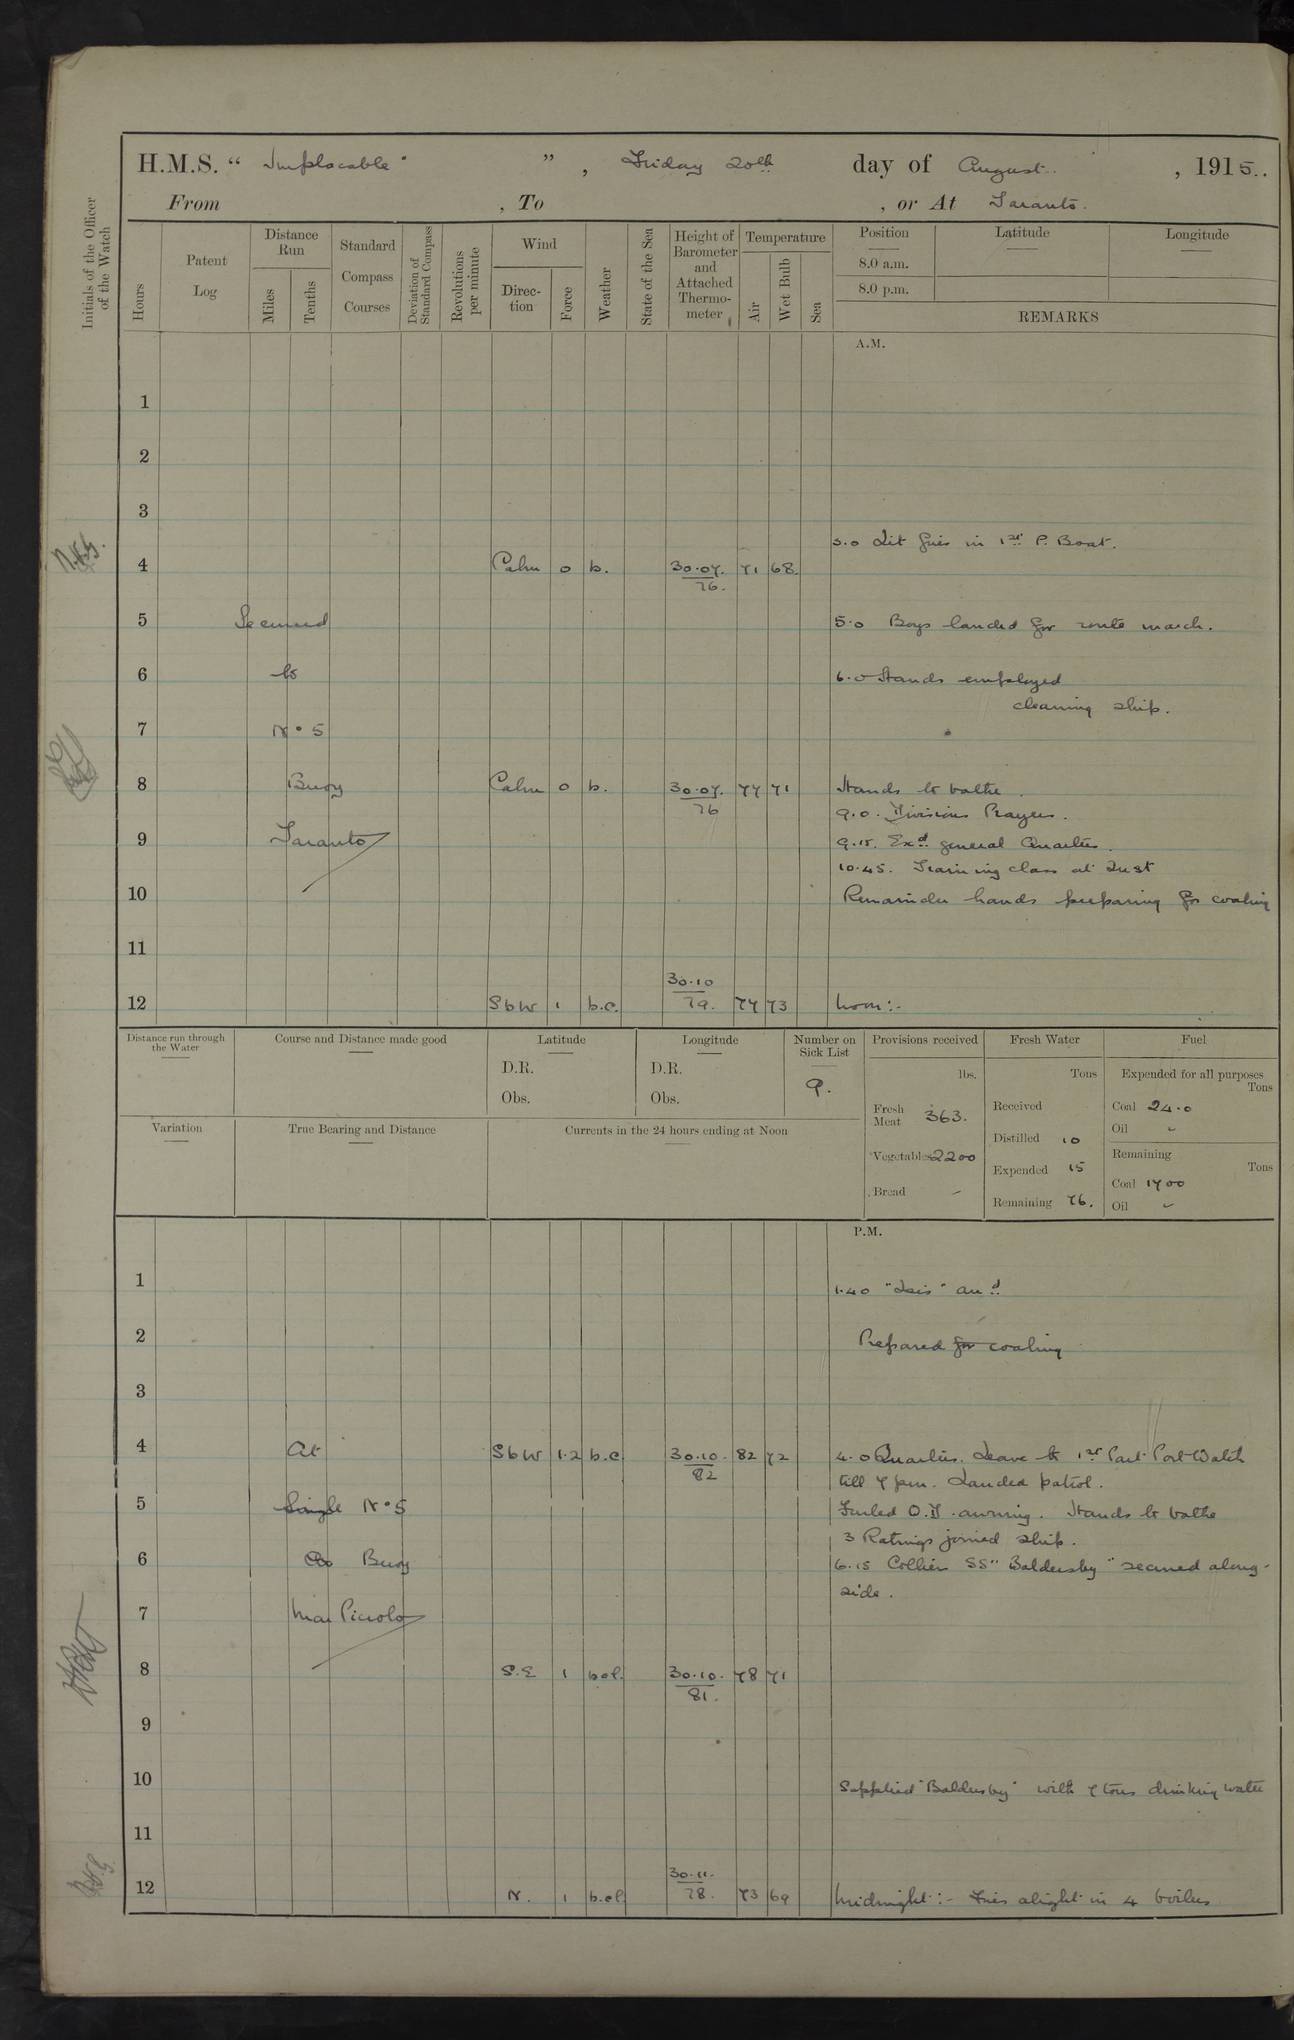 H.M.S. “ Implacable ” , Friday 20th day of August , 1915..
From , To , or At Taranto.
Initials of the Officer of the Watch
Hours
Patent Log
Distance Run
Miles
Tenths
Standard Compass Courses
Deviation of Standard Compass
Revolutions per minute
Wind
Direction
Force
Weather
State of the Sea
Height of Barometer and Attached Thermometer
Temperature
Air
Wet Bulb
Sea
Position
Latitude
Longitude
8.0 a.m.
8.0 p.m.
REMARKS
A.M.
1
2
3
3.0 Lit fires in 1st P. Boat.
4 Calm 0 b. 30.07. 71 68.
76.
5 Secured 5.0 Boys landed for route march.
6 to 6.0 Hands employed
cleaning ship.
7 No 5
8 Buoy Calm 0 b. 30.07. 77 71 Hands to bathe.
76
9.0. Divisions Prayers.
9 Taranto 9.15. Exd. general Quarters.
10.45. Training class at Inst
10 Remainder hands preparing for coaling
11
30.10
12 SbW 1 b.c. 79. 77 73 Noon:-
Distance run through the Water
Course and Distance made good
Latitude
D.R.
Obs.
Longitude
D.R.
Obs.
Number on Sick List
9.
Provisions received
lbs.
Fresh Meat 363.
Vegetables 2200
Bread -
Fresh Water
Tons
Received
Distilled 10
Expended 15
Remaining 76.
Fuel
Expended for all purposes
Tons
Coal 24.0
Oil -
Remaining
Tons
Coal 1700
Oil -
Variation
True Bearing and Distance
Currents in the 24 hours ending at Noon
P.M.
1 1.40 "Isis" arrd
2 Prepared for coaling
3
4 At SbW 1.2 b.c. 30.10. 82 72 4.0 Quarters. Leave to 1st Part Port Watch
82 till 7 pm. Landed patrol.
5 Single No 5 Furled Q.D. awning. Hands to bathe
3 Ratings joined ship.
6 Buoy 6.15 Collier SS "Baldersby" secured along-
side.
7 Mar Piccolo
8 S.E 1 bcl. 30.10. 78 71
81.
9
10 Supplied "Baldersby" with 7 tons drinking water
11
30.11.
12 N. 1 b.cl. 78. 73 69 Midnight:- Fires alight in 4 boilers